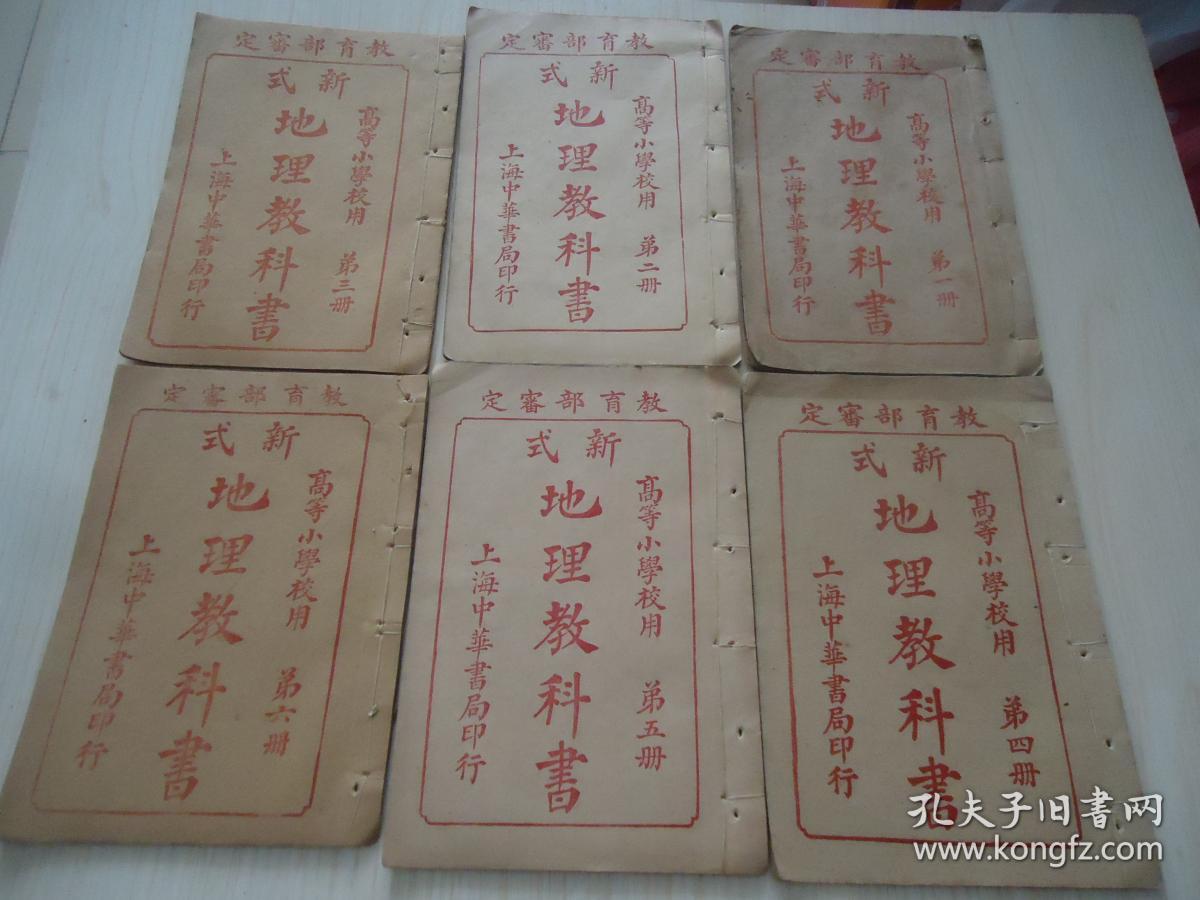 教育部審定
新式
高等小學校用 第一册
地理教科書
上海中華書局印行
教育部審定
新式
高等小學校用 第二册
地理教科書
上海中華書局印行
教育部審定
新式
高等小學校用 第三册
地理教科書
上海中華書局印行
教育部審定
新式
高等小學校用 第四册
地理教科書
上海中華書局印行
教育部審定
新式
高等小學校用 第五册
地理教科書
上海中華書局印行
教育部審定
新式
高等小學校用 第六册
地理教科書
上海中華書局印行
孔夫子旧书网
www.kongfz.com